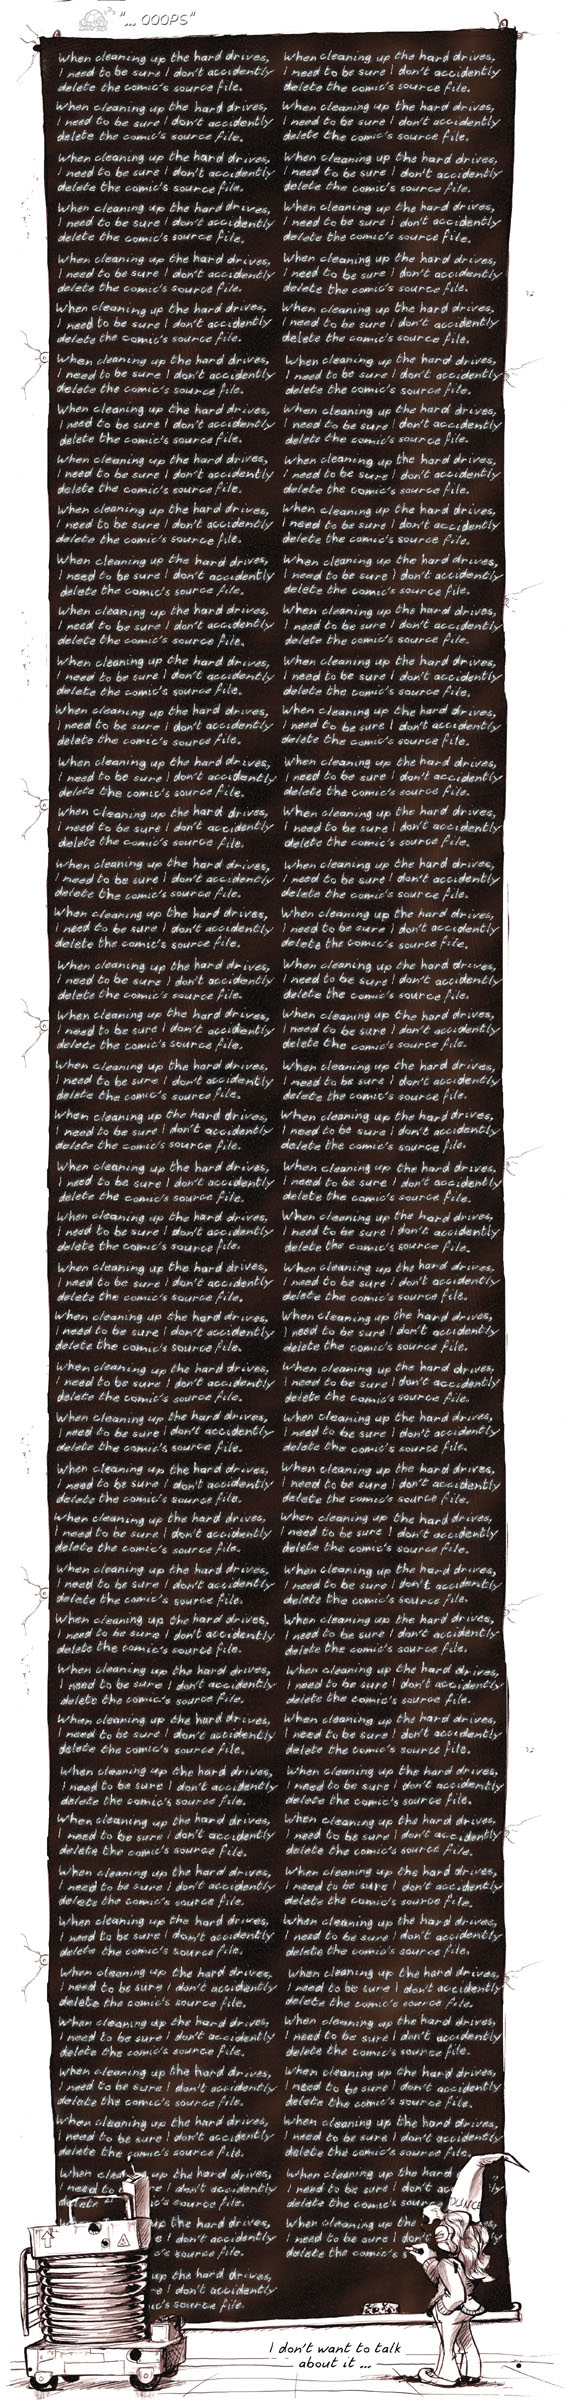 "... OOOPS"
When cleaning up the hard drives,
I need to be sure I don't accidently
delete the comic's source file.
When cleaning up the hard drives,
I need to be sure I don't accidently
delete the comic's source file.
When cleaning up the hard drives,
I need to be sure I don't accidently
delete the comic's source file.
When cleaning up the hard drives,
I need to be sure I don't accidently
delete the comic's source file.
When cleaning up the hard drives,
I need to be sure I don't accidently
delete the comic's source file.
When cleaning up the hard drives,
I need to be sure I don't accidently
delete the comic's source file.
When cleaning up the hard drives,
I need to be sure I don't accidently
delete the comic's source file.
When cleaning up the hard drives,
I need to be sure I don't accidently
delete the comic's source file.
When cleaning up the hard drives,
I need to be sure I don't accidently
delete the comic's source file.
When cleaning up the hard drives,
I need to be sure I don't accidently
delete the comic's source file.
When cleaning up the hard drives,
I need to be sure I don't accidently
delete the comic's source file.
When cleaning up the hard drives,
I need to be sure I don't accidently
delete the comic's source file.
When cleaning up the hard drives,
I need to be sure I don't accidently
delete the comic's source file.
When cleaning up the hard drives,
I need to be sure I don't accidently
delete the comic's source file.
When cleaning up the hard drives,
I need to be sure I don't accidently
delete the comic's source file.
When cleaning up the hard drives,
I need to be sure I don't accidently
delete the comic's source file.
When cleaning up the hard drives,
I need to be sure I don't accidently
delete the comic's source file.
When cleaning up the hard drives,
I need to be sure I don't accidently
delete the comic's source file.
When cleaning up the hard drives,
I need to be sure I don't accidently
delete the comic's source file.
When cleaning up the hard drives,
I need to be sure I don't accidently
delete the comic's source file.
When cleaning up the hard drives,
I need to be sure I don't accidently
delete the comic's source file.
When cleaning up the hard drives,
I need to be sure I don't accidently
delete the comic's source file.
When cleaning up the hard drives,
I need to be sure I don't accidently
delete the comic's source file.
When cleaning up the hard drives,
I need to be sure I don't accidently
delete the comic's source file.
When cleaning up the hard drives,
I need to be sure I don't accidently
delete the comic's source file.
When cleaning up the hard drives,
I need to be sure I don't accidently
delete the comic's source file.
When cleaning up the hard drives,
I need to be sure I don't accidently
delete the comic's source file.
When cleaning up the hard drives,
I need to be sure I don't accidently
delete the comic's source file.
When cleaning up the hard drives,
I need to be sure I don't accidently
delete the comic's source file.
When cleaning up the hard drives,
I need to be sure I don't accidently
delete the comic's source file.
When cleaning up the hard drives,
I need to be sure I don't accidently
delete the comic's source file.
When cleaning up the hard drives,
I need to be sure I don't accidently
delete the comic's source file.
When cleaning up the hard drives,
I need to be sure I don't accidently
delete the comic's source file.
When cleaning up the hard drives,
I need to be sure I don't accidently
delete the comic's source file.
When cleaning up the hard drives,
I need to be sure I don't accidently
delete the comic's source file.
When cleaning up the hard drives,
I need to be sure I don't accidently
delete the comic's source file.
When cleaning up the hard drives,
I need to be sure I don't accidently
delete the comic's source file.
When cleaning up the hard drives,
I need to be sure I don't accidently
delete the comic's source file.
When cleaning up the hard drives,
I need to be sure I don't accidently
delete the comic's source file.
When cleaning up the hard drives,
I need to be sure I don't accidently
delete the comic's source file.
When cleaning up the hard drives,
I need to be sure I don't accidently
delete the comic's source file.
When cleaning up the hard drives,
I need to be sure I don't accidently
delete the comic's source file.
When up the hard drives,
I need to sure I don't accidently
delete source file.
up the hard drives,
sure I don't accidently
source file.
up the hard drives,
I don't accidently
source file.
When cleaning up the hard drives,
I need to be sure I don't accidently
delete the comic's source file.
When cleaning up the hard drives,
I need to be sure I don't accidently
delete the comic's source file.
When cleaning up the hard drives,
I need to be sure I don't accidently
delete the comic's source file.
When cleaning up the hard drives,
I need to be sure I don't accidently
delete the comic's source file.
When cleaning up the hard drives,
I need to be sure I don't accidently
delete the comic's source file.
When cleaning up the hard drives,
I need to be sure I don't accidently
delete the comic's source file.
When cleaning up the hard drives,
I need to be sure I don't accidently
delete the comic's source file.
When cleaning up the hard drives,
I need to be sure I don't accidently
delete the comic's source file.
When cleaning up the hard drives,
I need to be sure I don't accidently
delete the comic's source file.
When cleaning up the hard drives,
I need to be sure I don't accidently
delete the comic's source file.
When cleaning up the hard drives,
I need to be sure I don't accidently
delete the comic's source file.
When cleaning up the hard drives,
I need to be sure I don't accidently
delete the comic's source file.
When cleaning up the hard drives,
I need to be sure I don't accidently
delete the comic's source file.
When cleaning up the hard drives,
I need to be sure I don't accidently
delete the comic's source file.
When cleaning up the hard drives,
I need to be sure I don't accidently
delete the comic's source file.
When cleaning up the hard drives,
I need to be sure I don't accidently
delete the comic's source file.
When cleaning up the hard drives,
I need to be sure I don't accidently
delete the comic's source file.
When cleaning up the hard drives,
I need to be sure I don't accidently
delete the comic's source file.
When cleaning up the hard drives,
I need to be sure I don't accidently
delete the comic's source file.
When cleaning up the hard drives,
I need to be sure I don't accidently
delete the comic's source file.
When cleaning up the hard drives,
I need to be sure I don't accidently
delete the comic's source file.
When cleaning up the hard drives,
I need to be sure I don't accidently
delete the comic's source file.
When cleaning up the hard drives,
I need to be sure I don't accidently
delete the comic's source file.
When cleaning up the hard drives,
I need to be sure I don't accidently
delete the comic's source file.
When cleaning up the hard drives,
I need to be sure I don't accidently
delete the comic's source file.
When cleaning up the hard drives,
I need to be sure I don't accidently
delete the comic's source file.
When cleaning up the hard drives,
I need to be sure I don't accidently
delete the comic's source file.
When cleaning up the hard drives,
I need to be sure I don't accidently
delete the comic's source file.
When cleaning up the hard drives,
I need to be sure I don't accidently
delete the comic's source file.
When cleaning up the hard drives,
I need to be sure I don't accidently
delete the comic's source file.
When cleaning up the hard drives,
I need to be sure I don't accidently
delete the comic's source file.
When cleaning up the hard drives,
I need to be sure I don't accidently
delete the comic's source file.
When cleaning up the hard drives,
I need to be sure I don't accidently
delete the comic's source file.
When cleaning up the hard drives,
I need to be sure I don't accidently
delete the comic's source file.
When cleaning up the hard drives,
I need to be sure I don't accidently
delete the comic's source file.
When cleaning up the hard drives,
I need to be sure I don't accidently
delete the comic's source file.
When cleaning up the hard drives,
I need to be sure I don't accidently
delete the comic's source file.
When cleaning up the hard drives,
I need to be sure I don't accidently
delete the comic's source file.
When cleaning up the hard drives,
I need to be sure I don't accidently
delete the comic's source file.
When cleaning up the hard drives,
I need to be sure I don't accidently
delete the comic's source file.
When cleaning up the hard drives,
I need to be sure I don't accidently
delete the comic's source file.
When cleaning up the hard drives,
I need to be sure I don't accidently
delete the comic's source file.
When cleaning up the hard
I need to be sure I don't
delete the comic's
When cleaning up the hard
I need to be sure I don't
delete the comic's s
I don't want to talk
about it ...